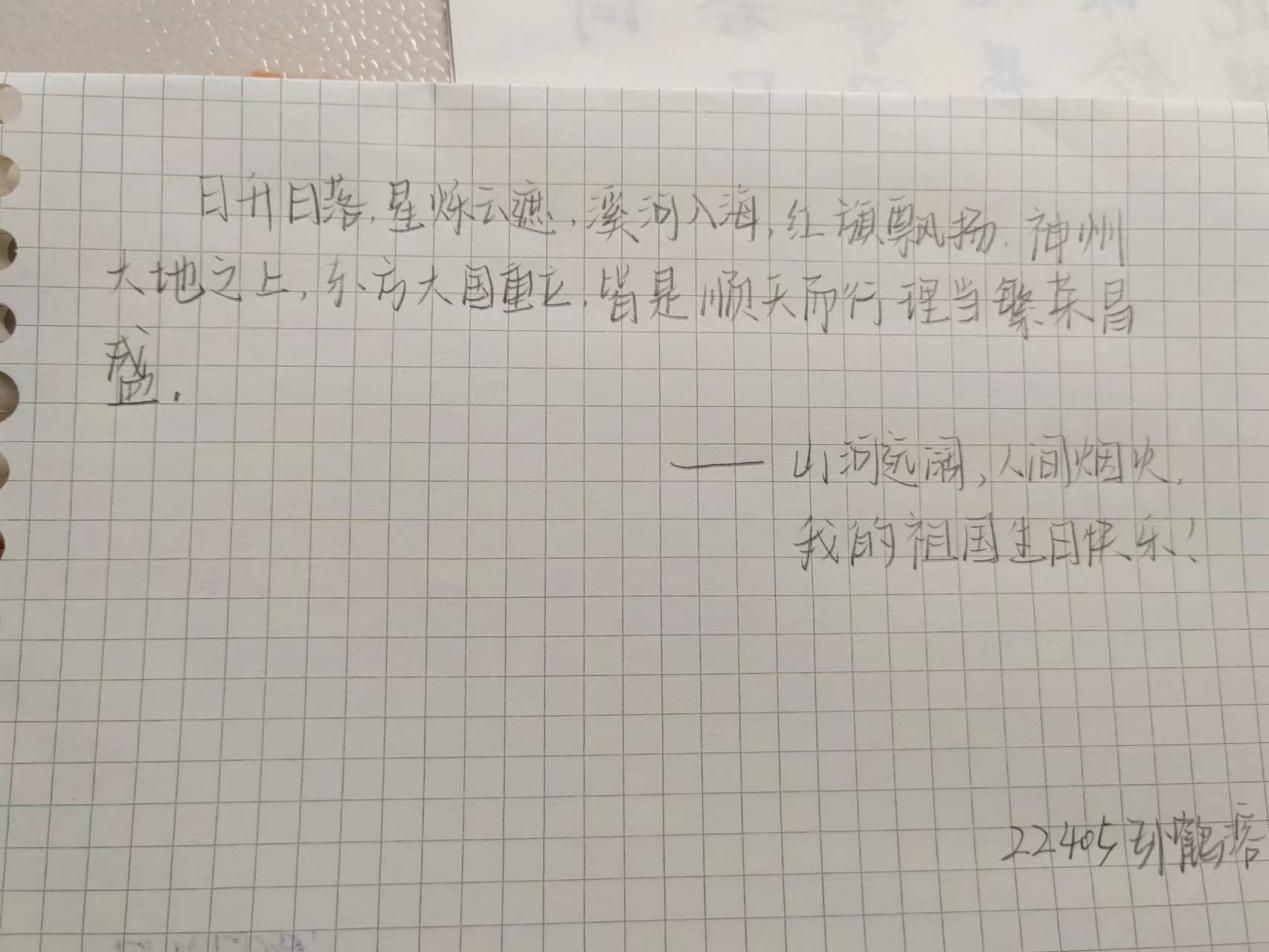 日升日落,星烁云遮,溪河入海,红旗飘扬.神州
大地之上,东方大国重立,皆是顺天而行理当繁荣昌
盛.
——山河远阔,人间烟火.
我的祖国生日快乐!
22405孙鹤